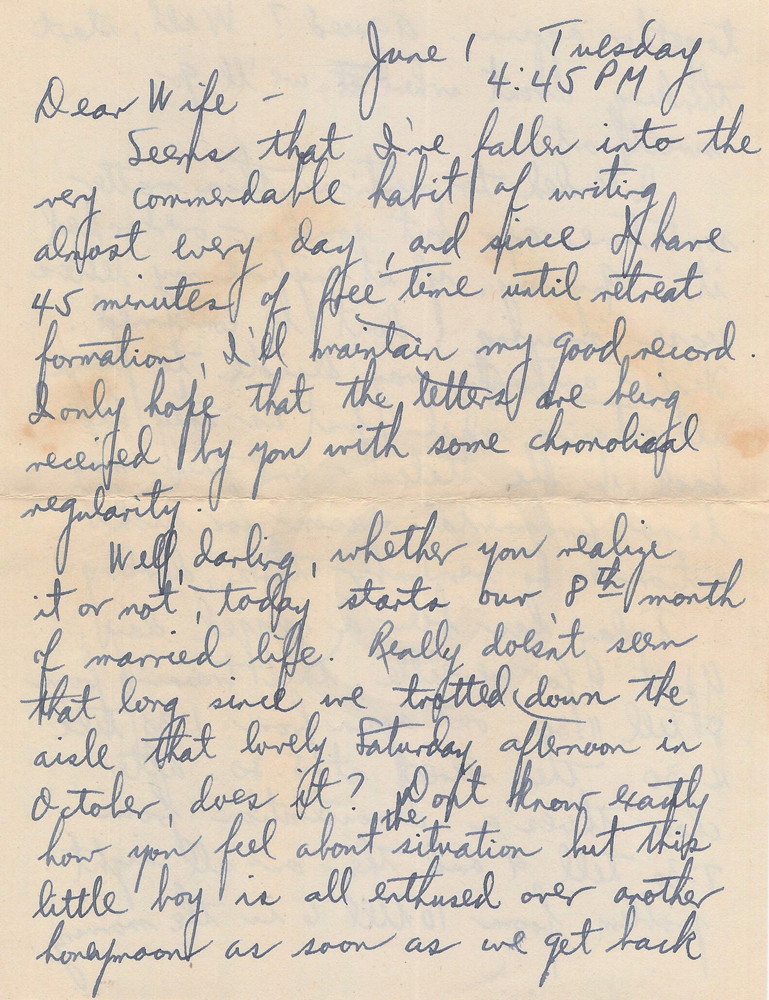 June 1 Tuesday
4:45 PM
Dear Wife –
Seems that I've fallen into the
very commendable habit of writing
almost every day, and since I have
45 minutes of free time until retreat
formation, I'll maintain my good record.
I only hope that the letters are being
received by you with some chronolical
regularity.
Well, darling, whether you realize
it or not, today starts our 8th month
of married life. Really doesn't seem
that long since we trotted down the
aisle that lovely Saturday afternoon in
October, does it? Don't know exactly
how you feel about the situation but this
little boy is all enthused over another
honeymoon as soon as we get back